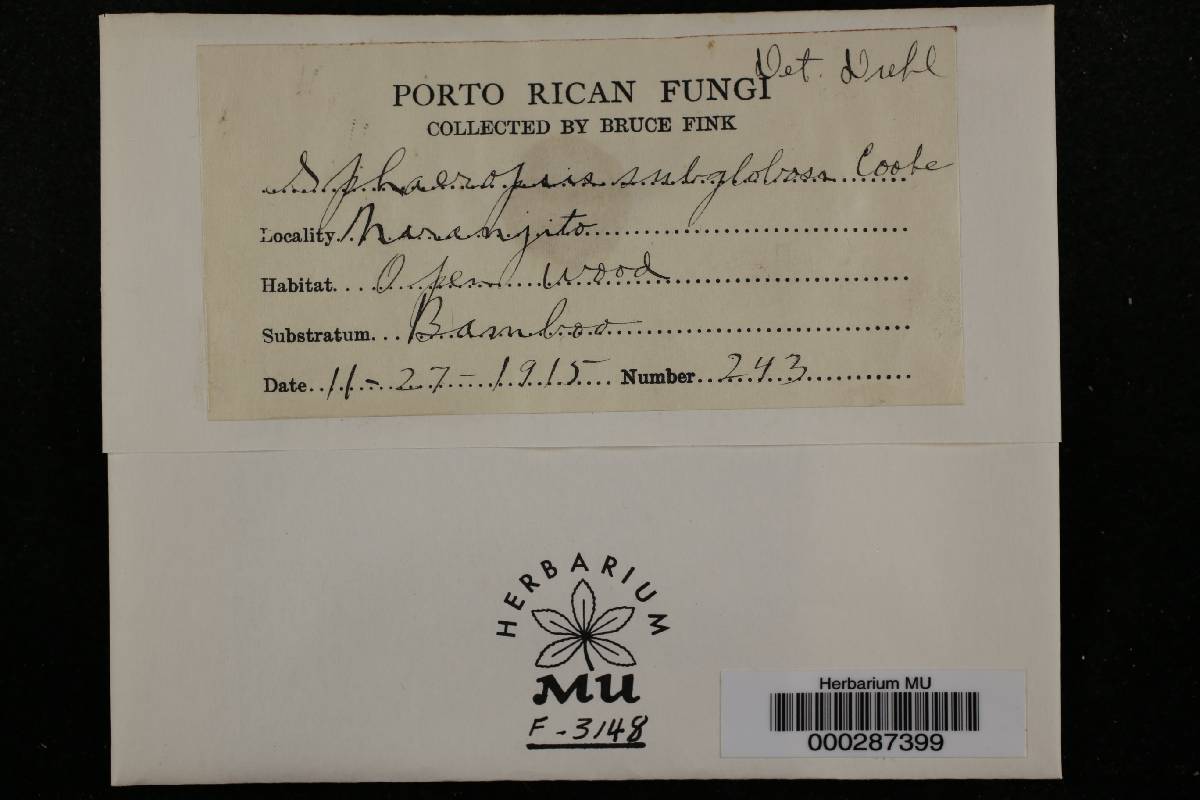 Det. Diehl
PORTO RICAN FUNGI
COLLECTED BY BRUCE FINK
Sphaeropsis subglobosa Cooke
Locality Naranjito
Habitat Open wood
Substratum Bamboo
Date 11-27-1915 Number 243
HERBARIUM
MU
F-3148
Herbarium MU
000287399